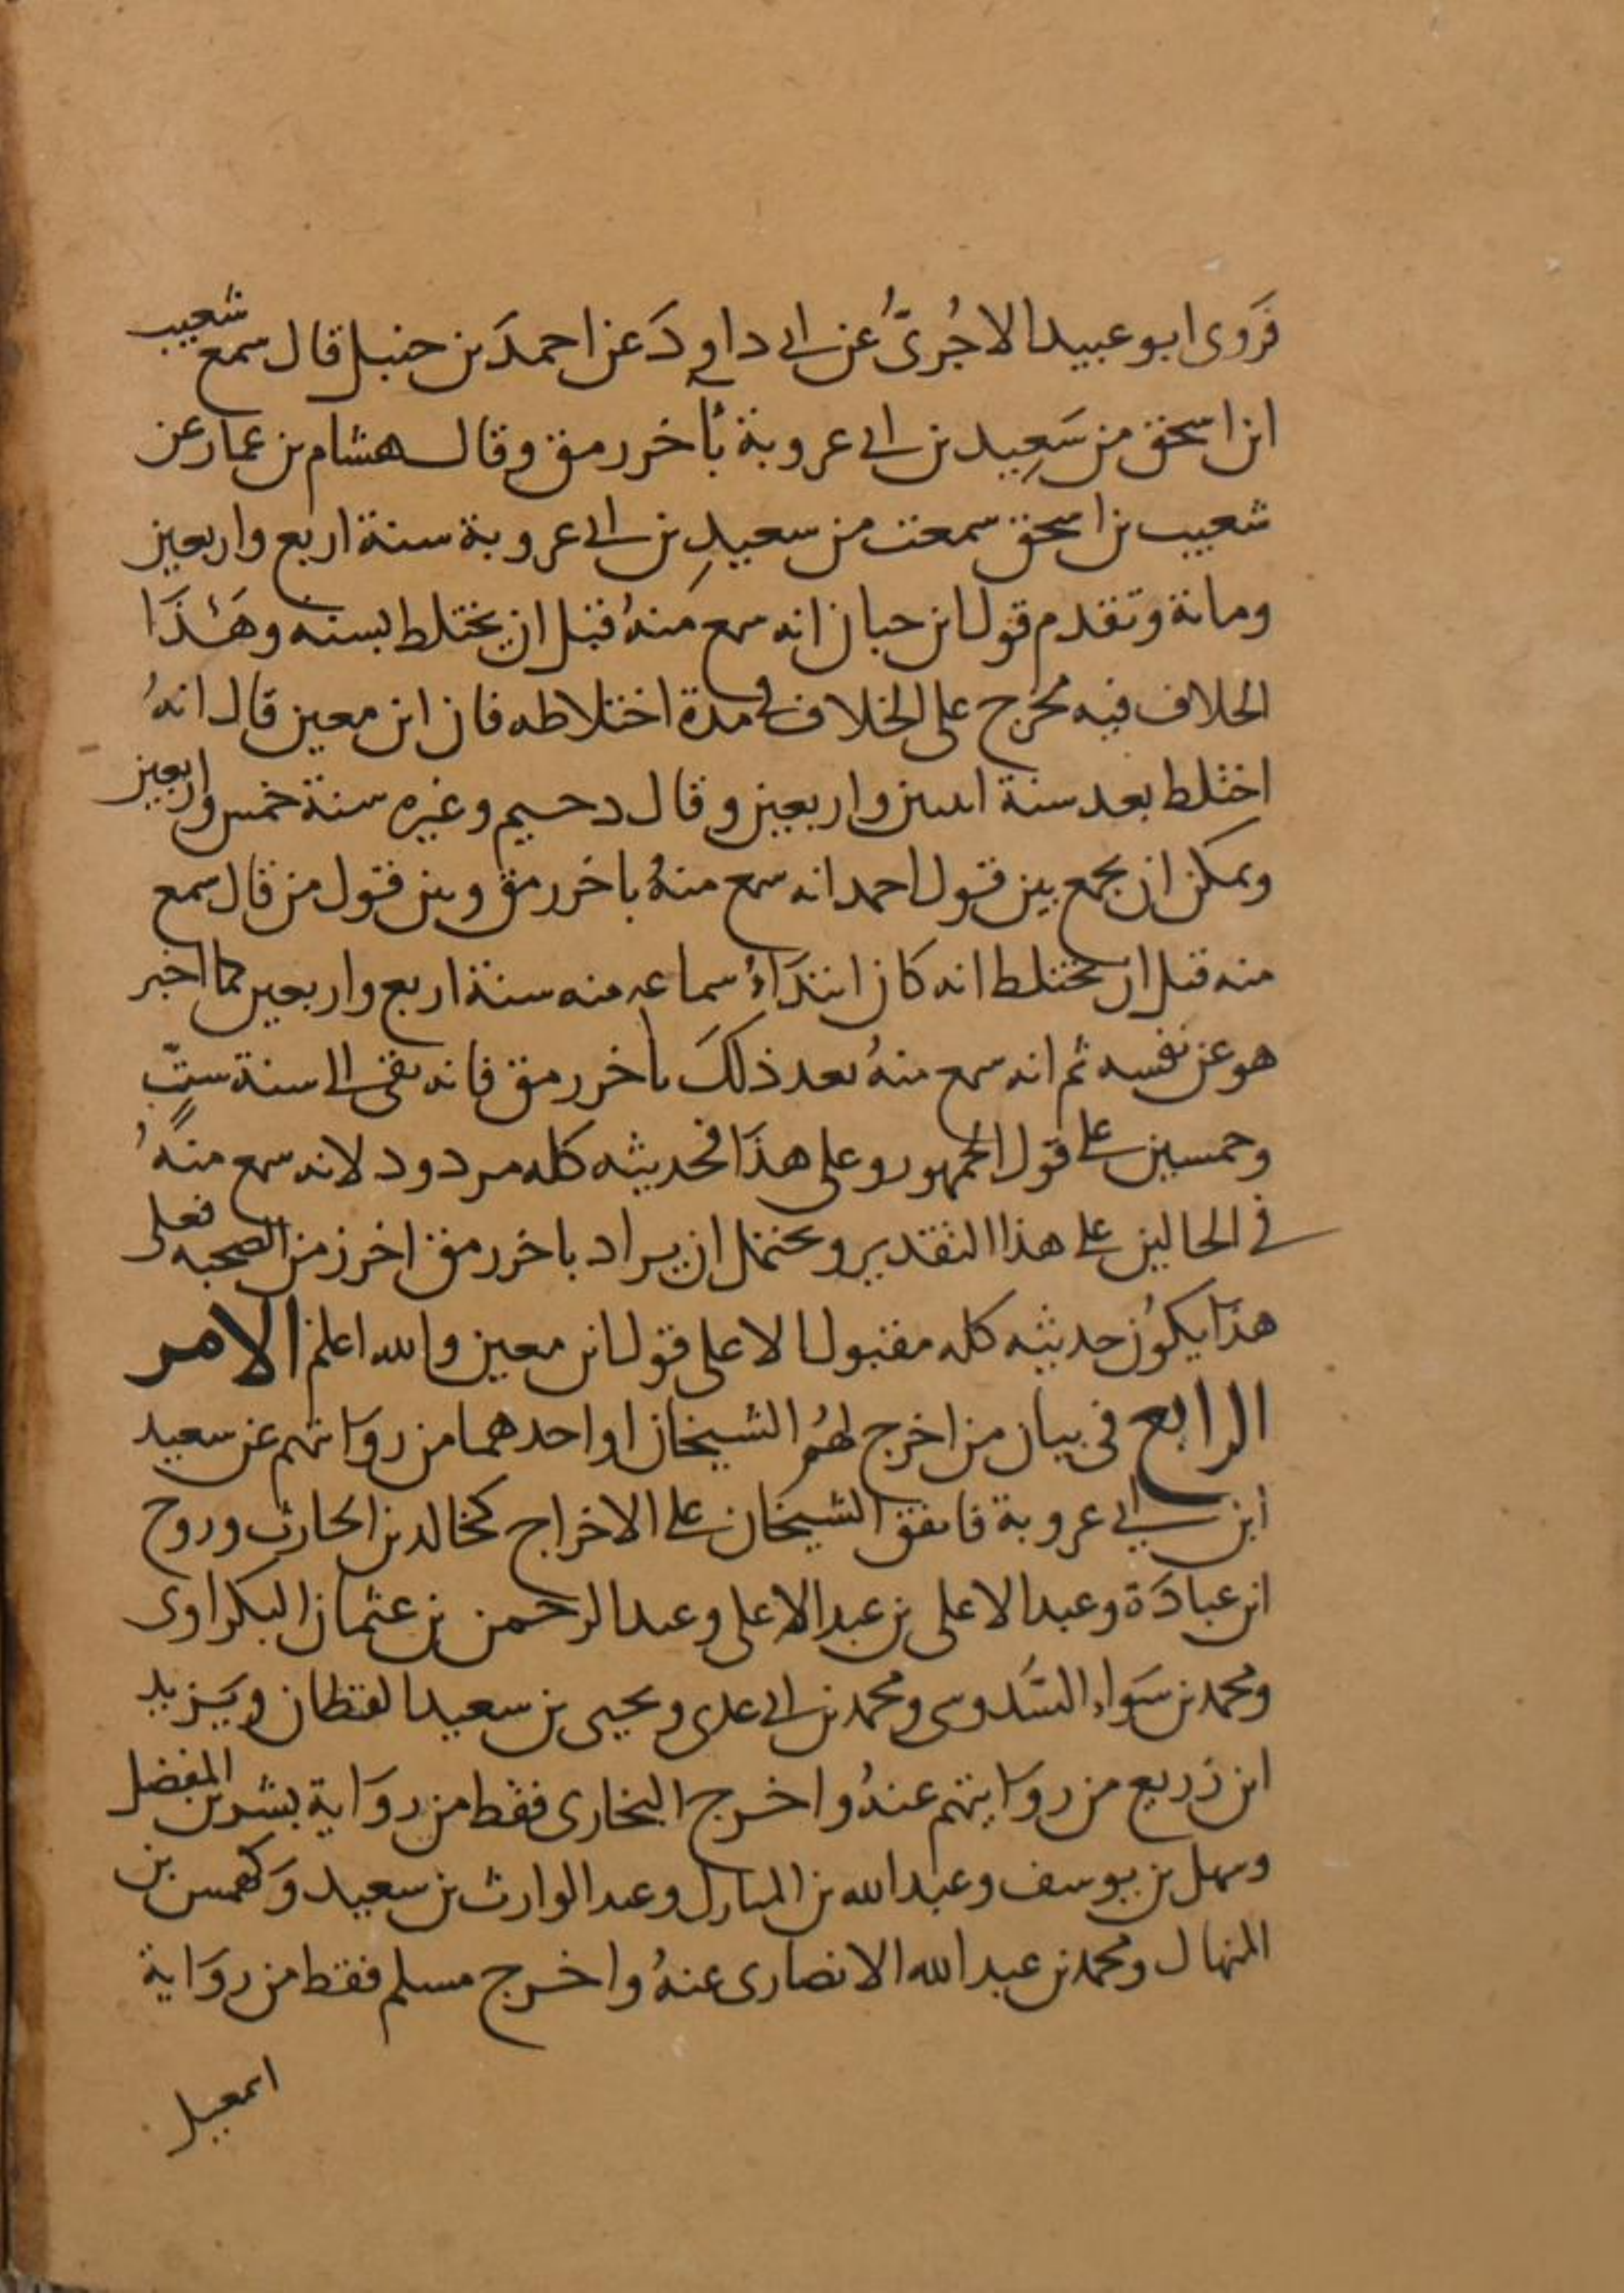 فَروى ابو عبيد الاجُرىُّ عن ابى داود عن احمدَ بن حنبل قال سمع شعيب
ابن اسحق من سَعِيد بن ابى عروبة بأخر رمق وقال هشام بن عمار عن
شعيب بن اسحق سمعت من سعيدِ بن ابى عروبة سنة اربع واربعين
ومائة وتقدم قول ابن حبان انه سمع منهُ قبل ان يختلط بسنه وهَذَا
الخلاف فيه مخرج على الخلاف فى مدة اختلاطه فان ابن معين قال انهُ
اختلط بعد سنة اثنين واربعين وقال دحيم وغيره سنة خمس واربعين
ويمكن ان يجمع بين قول احمد انه سمع منهُ باخر رمق وبين قول من قال سمع
منه قبل ان يختلط انه كان ابتدَاءُ سماعه منه سنة اربع واربعين كما اخبر
هو عن نفسه ثم انه سمع منهُ بعد ذلكَ باخر رمق فانه بقى الى سنة ستٍّ
وخمسين على قول الجمهور وعلى هذَا فحديثه كله مردود لانه سمع منهُ
فى الحالين على هذا التقدير ويحتمل ان يراد باخر رمق اخر زمن الصحبه فعلى
هذَا يكُون حديثه كله مقبولا الا على قول ابن معين والله اعلم الامر
الرابع فى بيان من اخرج لهُم الشيخان او احدهما من روَايتهم عن سعيد
ابن ابى عروبة فاتفق الشيخان على الاخراج كخالد بن الحارث وروح
ابن عبادَة وعبد الاعلى بن عبد الاعلى وعبد الرحمن بن عثمان البكراوى
ومحمد بن سَوَاء السَّدوسى ومحمد بن ابى عدى ويحيى بن سعيد القطان ويَزيد
ابن زريع من روَايتهم عنهُ واخرج البخارى فقط من روَاية بشر بن المفضل
وسهل بن يوسف وعبد الله بن المبارك وعبد الوارث بن سعيد وَكهمس بن
المنهال ومحمد بن عبد الله الانصارى عنهُ واخرج مسلم فقط من روَاية
اسمعيل